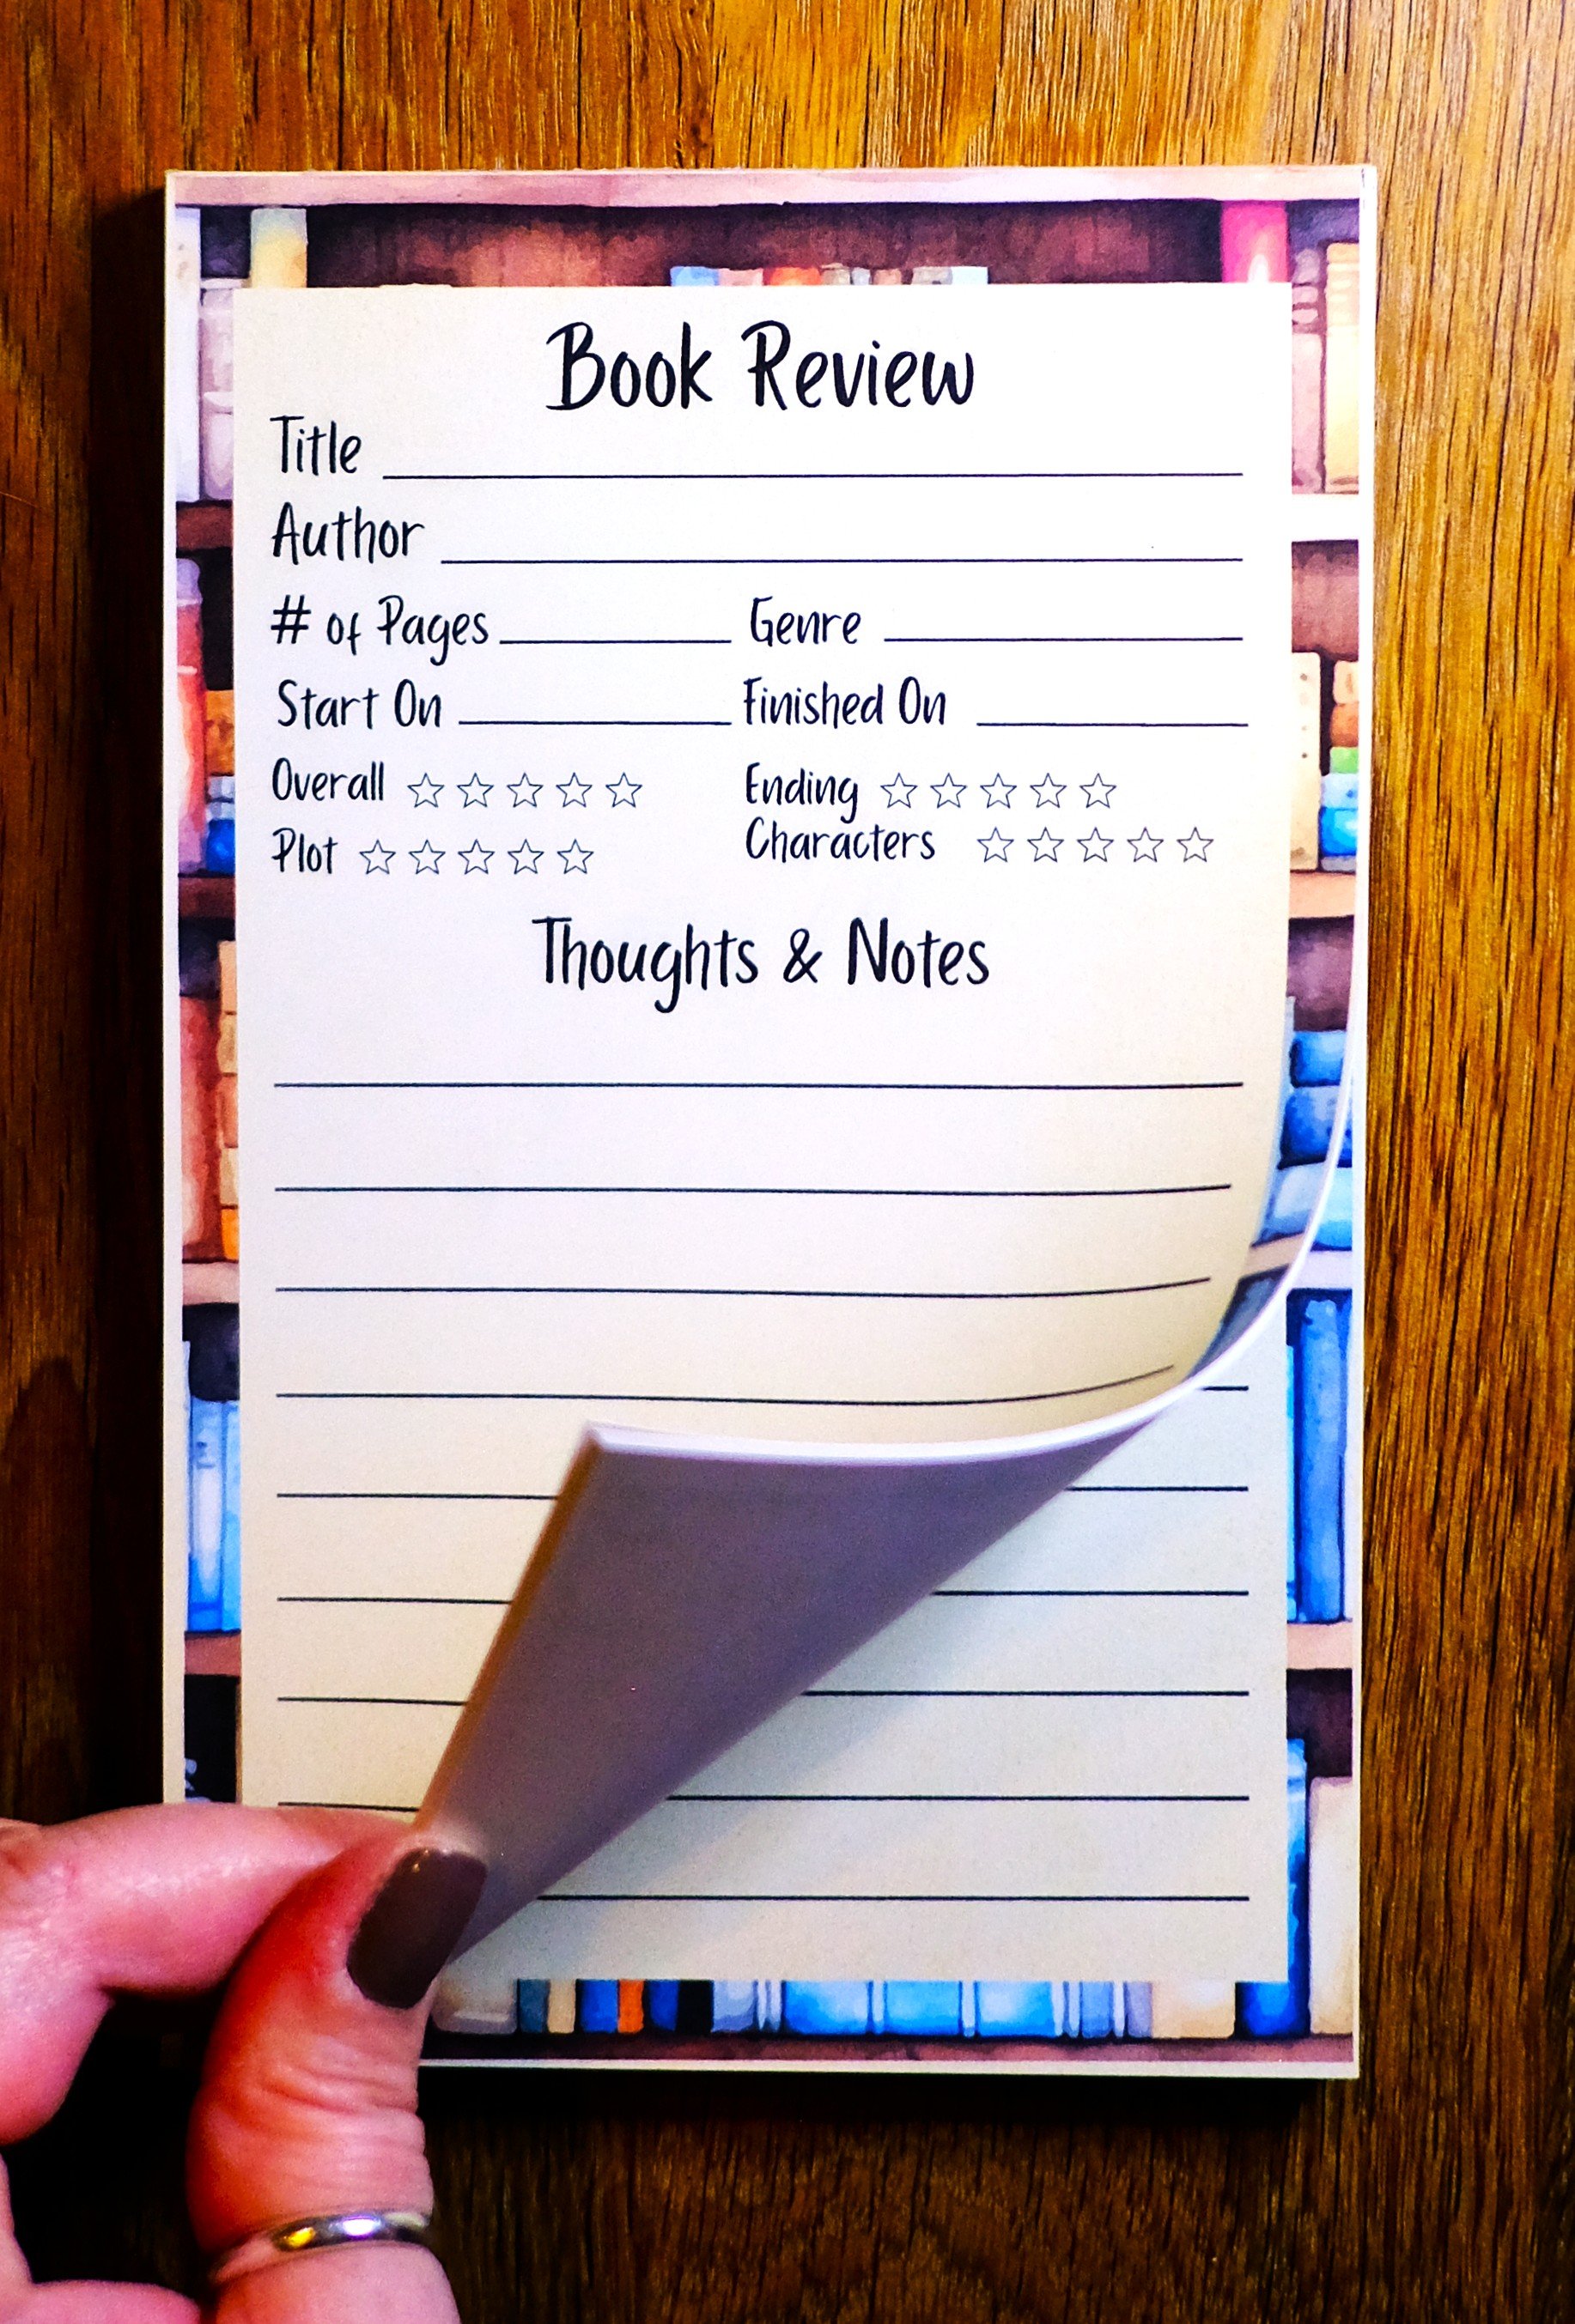 Book Review
Title
Author
# of Pages Genre
Start On Finished On
Overall Ending
Plot Characters
Thoughts & Notes